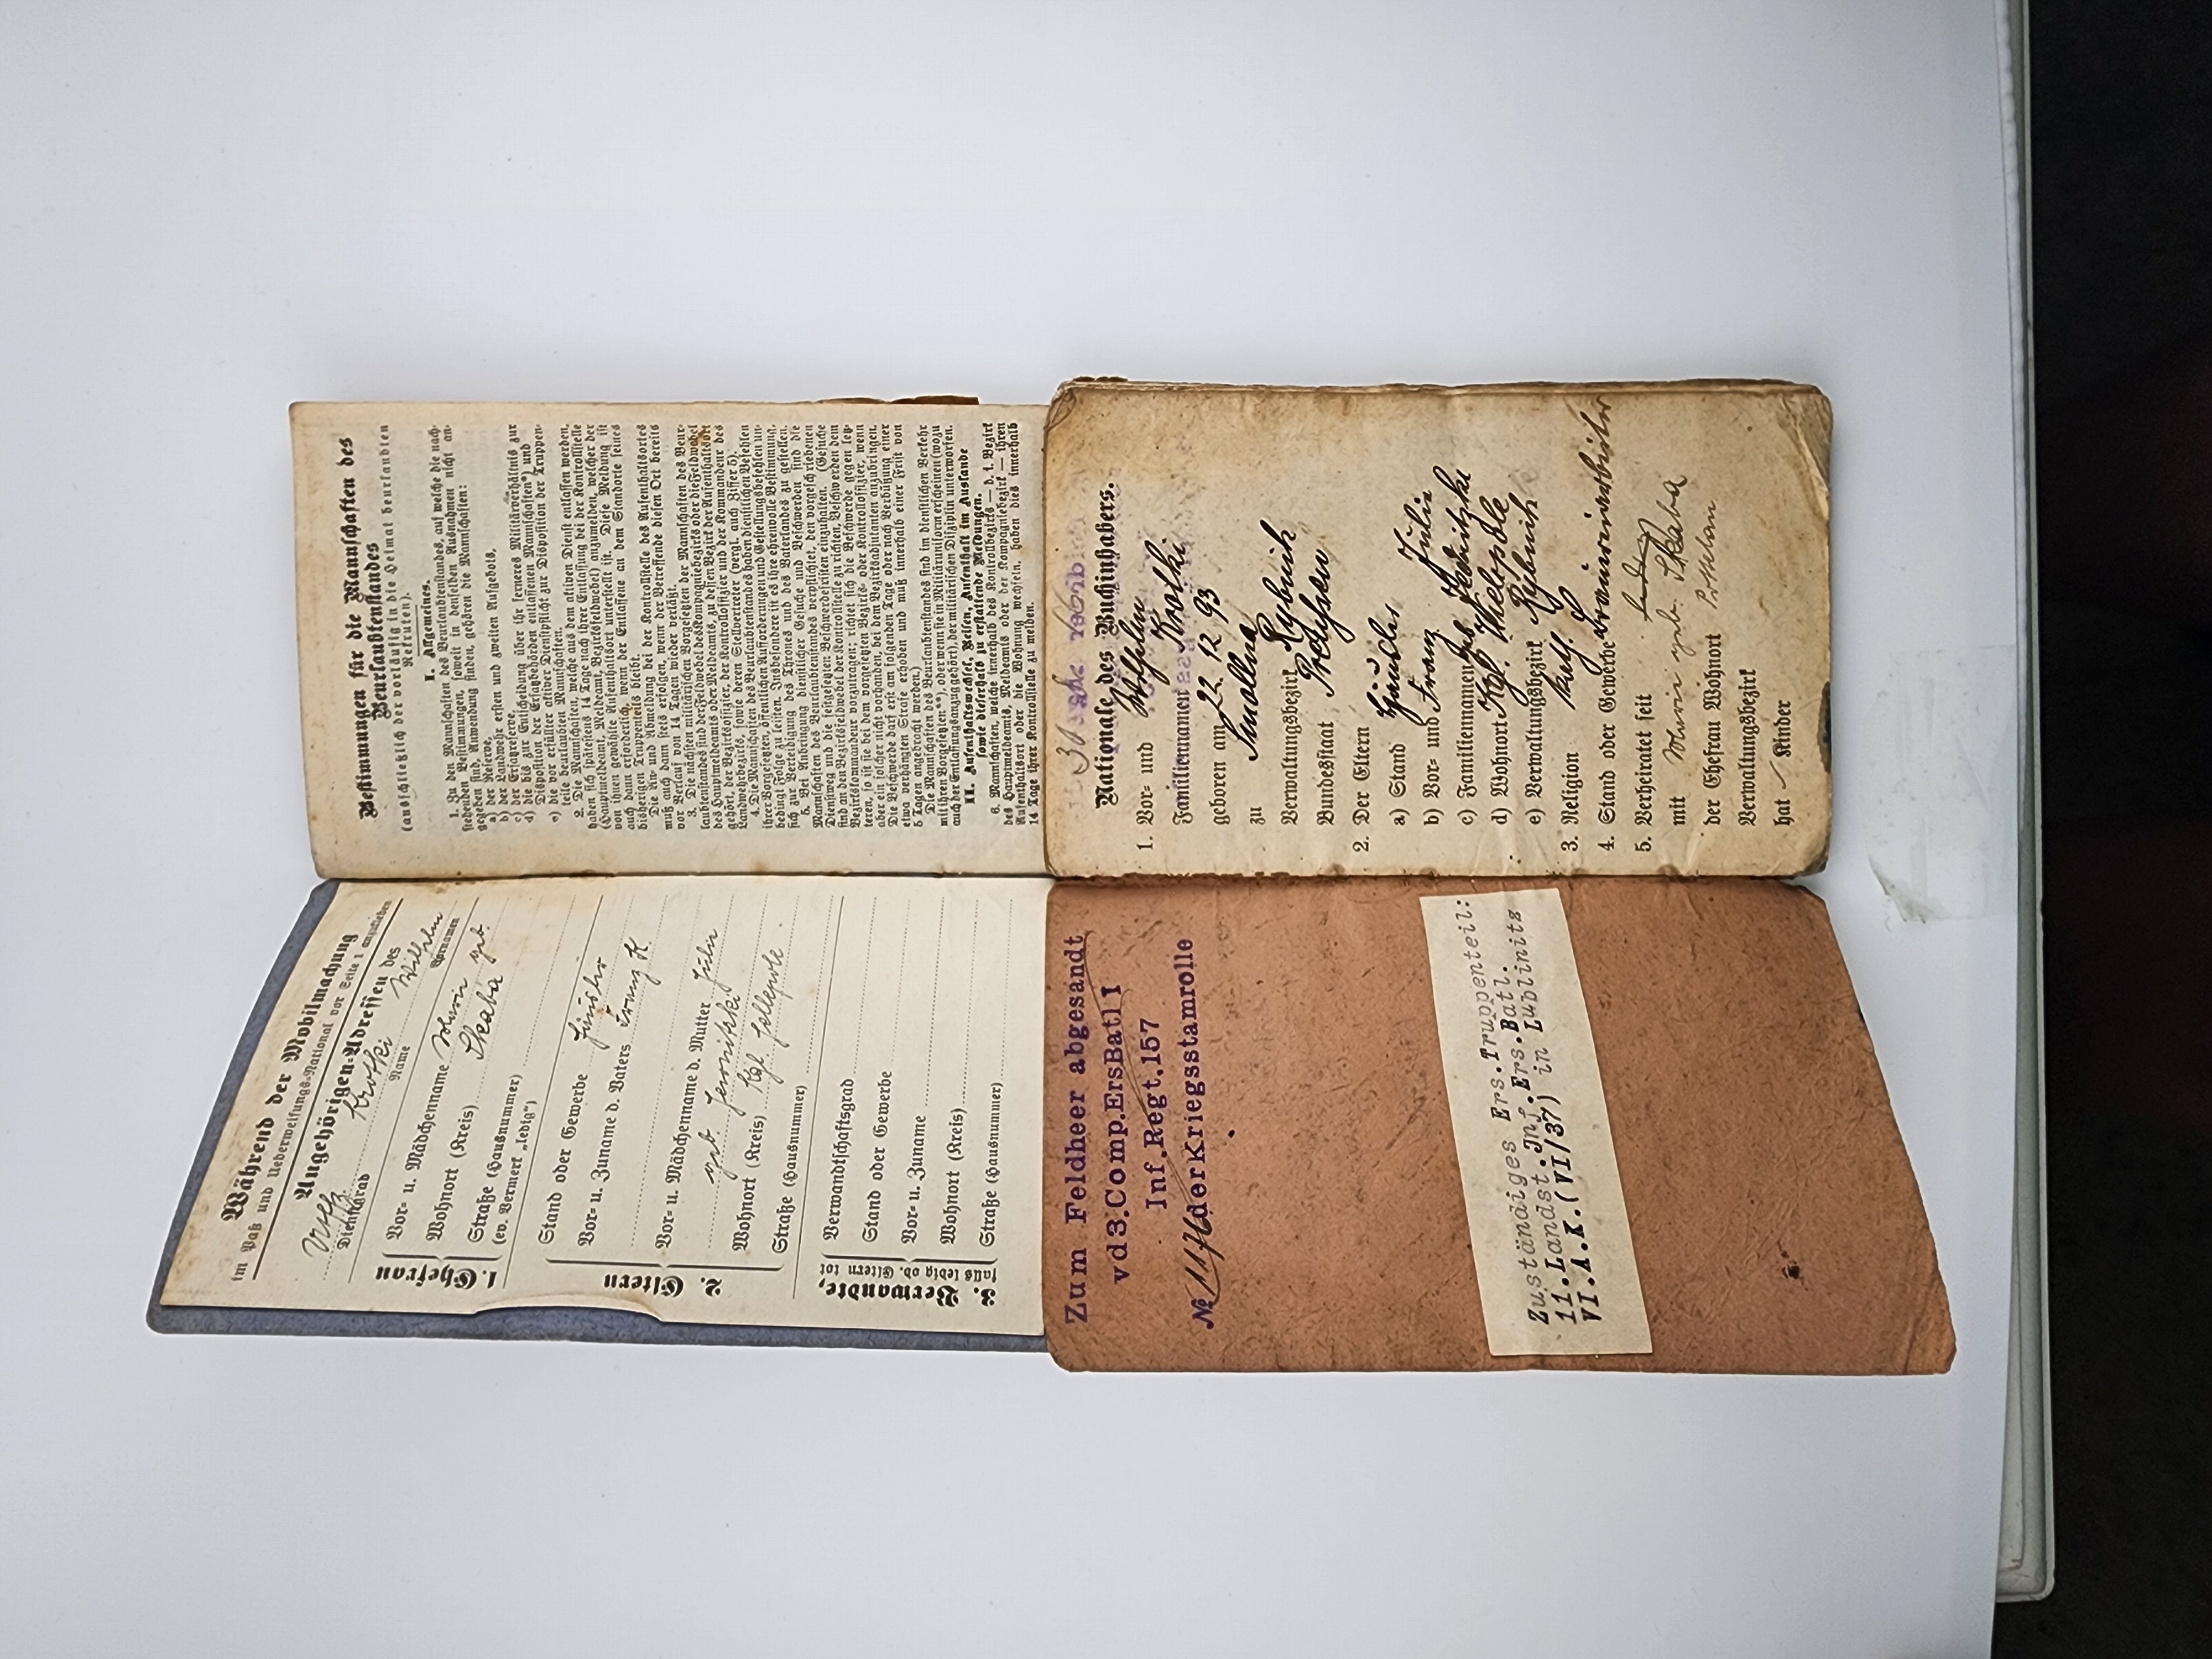 Während der Mobilmachung
im Paß und Ueberweisungs-National vor Seite 1 anzukleben
Angehörigen-Adressen des
Uoffz. Krotki Wilhelm
Dienstgrad Name Vornamen
1. Ehefrau
Vor- u. Mädchenname Marie geb.
Wohnort (Kreis) Skaba
Straße (Hausnummer)
(ev. Vermerk „ledig“)
2. Eltern
Stand oder Gewerbe Häusler
Vor- u. Zuname d. Vaters Franz K.
Vor- u. Mädchenname d. Mutter Julie
geb.
Wohnort (Kreis) Kgl.
Straße (Hausnummer)
3. Verwandte,
falls ledig od. Eltern tot
Verwandtschaftsgrad
Stand oder Gewerbe
Vor- u. Zuname
Wohnort (Kreis)
Straße (Hausnummer)
Bestimmungen für die Mannschaften des
Beurlaubtenstandes
(ausschließlich der vorläufig in die Heimat beurlaubten
Rekruten).
I. Allgemeines.
1. Zu den Mannschaften des Beurlaubtenstandes, auf welche die nach-
stehenden Bestimmungen, soweit in denselben Ausnahmen nicht an-
gegeben sind, Anwendung finden, gehören die Mannschaften:
a) der Reserve,
b) der Landwehr ersten und zweiten Aufgebots,
c) der Ersatzreserve,
d) die bis zur Entscheidung über ihr ferneres Militärverhältnis zur
Disposition der Ersatzbehörden entlassenen Mannschaften*) und
e) die vor erfüllter aktiver Dienstpflicht zur Disposition der Truppen-
teile beurlaubten Mannschaften.
2. Die Mannschaften, welche aus dem aktiven Dienst entlassen werden,
haben sich spätestens 14 Tage nach ihrer Entlassung bei der Kontrollstelle
(Hauptmeldeamt, Meldeamt, Bezirksfeldwebel) anzumelden, welcher der
von ihnen gewählte Aufenthaltsort unterstellt ist. Diese Meldung ist
auch dann erforderlich, wenn der Entlassene an dem Standorte seines
bisherigen Truppenteils bleibt.
Die An- und Abmeldung bei der Kontrollstelle des Aufenthaltsortes
muß auch dann stets erfolgen, wenn der Betreffende diesen Ort bereits
vor Verlauf von 14 Tagen wieder verläßt.
3. Die nächsten militärischen Vorgesetzten der Mannschaften des Beur-
laubtenstandes sind der Feldwebel des Kompagniebezirks oder die Feldwebel
des Hauptmeldeamts oder Meldeamts, zu dessen Bezirk der Aufenthaltsort
gehört, der Bezirksoffizier, der Kontrolloffizier und der Kommandeur des
Landwehrbezirks, sowie deren Stellvertreter (vergl. auch Ziffer 5).
4. Die Mannschaften des Beurlaubtenstandes haben dienstlichen Befehlen
ihrer Vorgesetzten, öffentlichen Aufforderungen und Gestellungsbefehlen un-
bedingt Folge zu leisten. Insbesondere ist es ihre ehrenvolle Bestimmung,
sich zur Verteidigung des Thrones und des Vaterlandes zu gestellen.
5. Bei Anbringung dienstlicher Gesuche und Beschwerden sind die
Mannschaften des Beurlaubtenstandes verpflichtet, den vorgeschriebenen
Dienstweg und die festgesetzten Beschwerdefristen einzuhalten. (Gesuche
sind an den Bezirksfeldwebel der Kontrollstelle zu richten, Beschwerden dem
Bezirkskommandeur vorzutragen; richtet sich die Beschwerde gegen letz-
teren, so ist sie bei dem vorgesetzten Bezirks- oder Kontrolloffizier, wenn
aber ein solcher nicht vorhanden, bei dem Bezirksadjutanten anzubringen.
Die Beschwerde darf erst am folgenden Tage oder nach Verbüßung einer
etwa verhängten Strafe erhoben und muß innerhalb einer Frist von
5 Tagen angebracht werden.)
Die Mannschaften des Beurlaubtenstandes sind im dienstlichen Verkehr
mit ihren Vorgesetzten**), oder wenn sie in Militäruniform erscheinen (wozu
auch der Entlassungsanzug gehört), der militärischen Disziplin unterworfen.
II. Aufenthaltswechsel, Reisen, Aufenthalt im Auslande
sowie dieserhalb zu erstattende Meldungen.
6. Mannschaften, welche innerhalb des Kontrollbezirks — d. i. Bezirk
des Hauptmeldeamts, Meldeamts oder der Kompagniebezirk — ihren
Aufenthaltsort oder die Wohnung wechseln, haben dies innerhalb
14 Tage ihrer Kontrollstelle zu melden.
Zum Feldheer abgesandt
vd3.Comp.ErsBatl I
Inf.Regt.157
№ 1176 der Kriegsstamrolle
Zuständiges Ers.Truppenteil:
11.Landst.Inf.Ers.Batl.
VI.A.K.(VI/37) in Lublinitz
Nationale des Buchinhabers.
1. Vor- und Wilhelm
Familiennamen Krotki
geboren am 22. 12 93
zu Smollna
Verwaltungsbezirk Rybnik
Bundesstaat Preussen
2. Der Eltern
a) Stand Häusler
b) Vor- und Franz Julie
c) Familiennamen geb. Jednitzki
d) Wohnort Kgl. Wielepole
e) Verwaltungsbezirk Rybnik
3. Religion kath.
4. Stand oder Gewerbe Brauereiarbeiter
5. Verheiratet seit ledig
mit Marie geb. Skaba
der Ehefrau Wohnort
Verwaltungsbezirk
hat Kinder